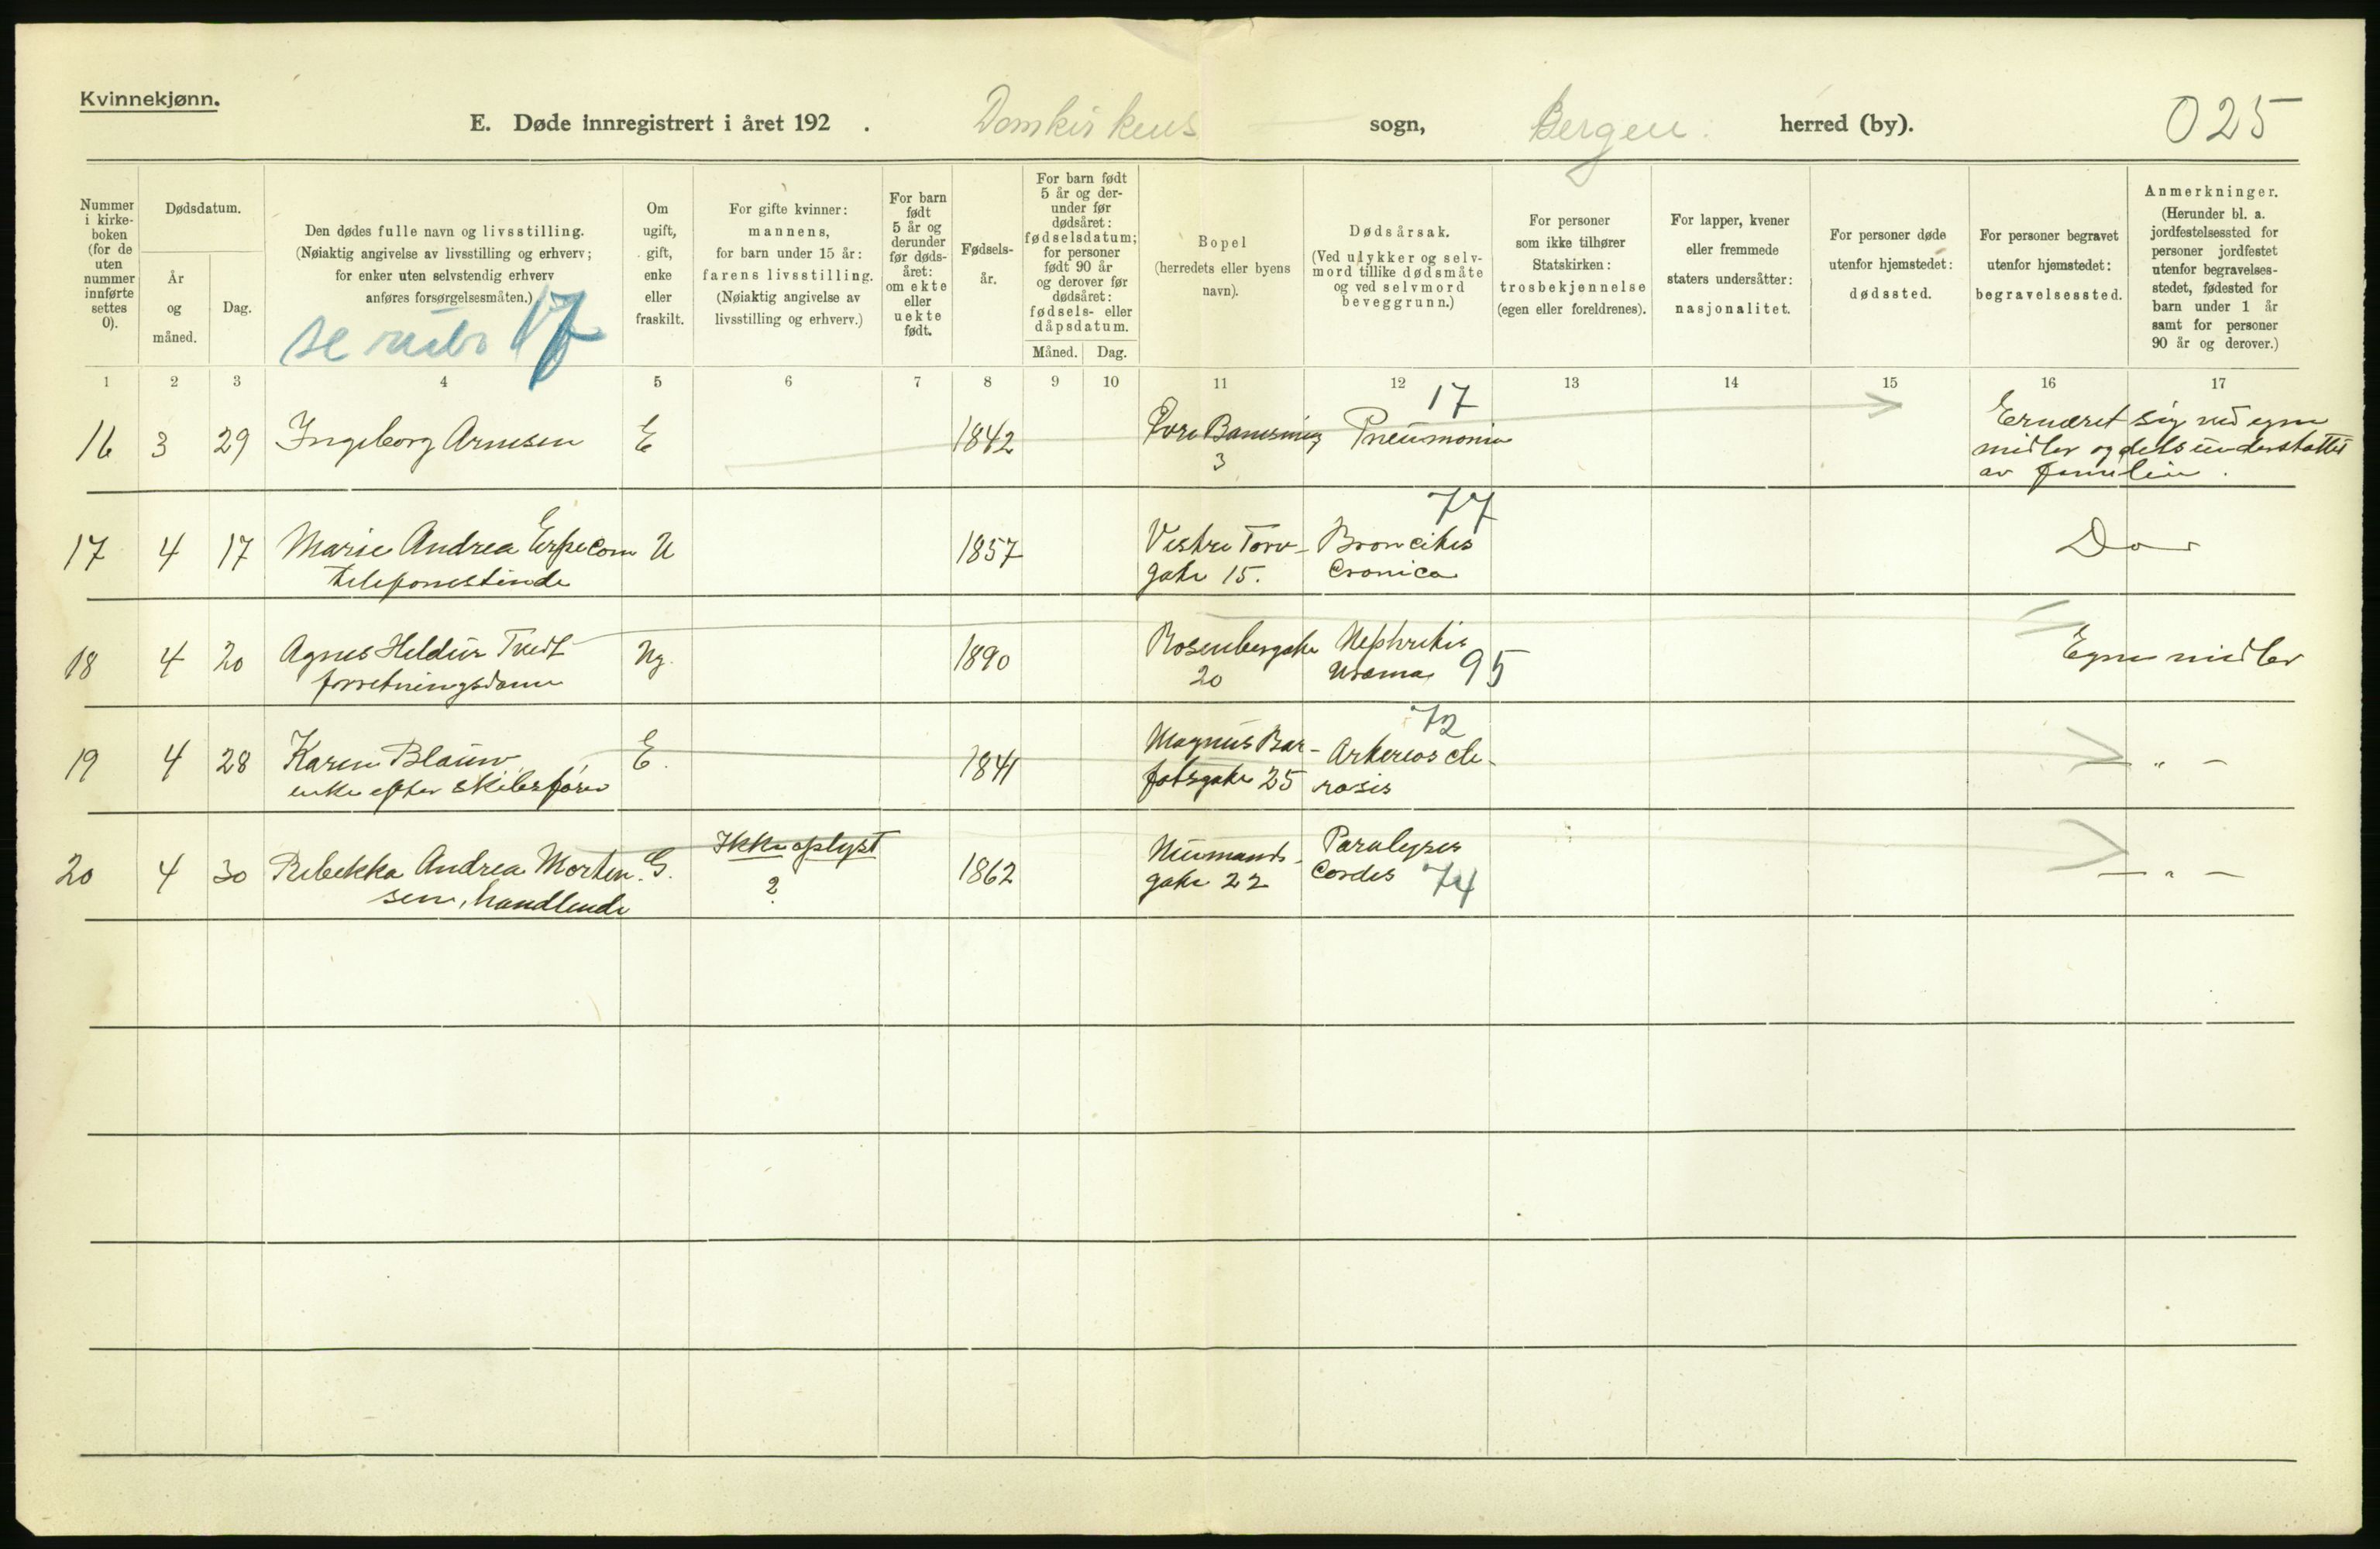 Kvinnekjønn.
E. Døde innregistrert i året 192 . Domkirkens sogn, Bergen. herred (by). 025
Nummer i kirke- boken (for de uten nummer innførte settes 0).
Dødsdatum.
År og måned.
Dag.
Den dødes fulle navn og livsstilling.
(Nøiaktig angivelse av livsstilling og erhverv;
for enker uten selvstendig erhverv
anføres forsørgelsesmåten.)
se rubr 17
Om ugift, gift, enke eller fraskilt.
For gifte kvinner:
mannens,
for barn under 15 år:
farens livsstilling.
(Nøiaktig angivelse av
livsstilling og erhverv.)
For barn født 5 år og derunder før døds- året: om ekte eller uekte født.
Fødsels- år.
For barn født 5 år og der- under før dødsåret: fødselsdatum; for personer født 90 år og derover før dødsåret: fødsels- eller dåpsdatum.
Måned. Dag.
Bopel
(herredets eller byens
navn).
Dødsårsak.
(Ved ulykker og selv-
mord tillike dødsmåte
og ved selvmord
beveggrunn.)
For personer
som ikke tilhører
Statskirken:
trosbekjennelse
(egen eller foreldrenes).
For lapper, kvener
eller fremmede
staters undersåtter:
nasjonalitet.
For personer døde
utenfor hjemstedet:
dødssted.
For personer begravet
utenfor hjemstedet:
begravelsessted.
Anmerkninger.
(Herunder bl. a.
jordfestelsessted for
personer jordfestet
utenfor begravelses-
stedet, fødested for
barn under 1 år
samt for personer
90 år og derover.)
1 2 3 4 5 6 7 8 9 10 11 12 13 14 15 16 17
17
16 3 29 Ingeborg Arnesen E 1842 Øvre 3 Pneumonia Ernæret sig ved egne
midler og dels understøttet
av familien.
77
17 4 17 Marie Andrea Erpecom U 1857 Vestre Torv- Broncitis Do
telefonistinde gate 15. Cronica
18 4 20 Agnes Tvedt Ug. 1890 Rosenbergsgate Nephritis Egne midler
forretningsdame 20 Uræma 95
72
19 4 28 Karen Blauw E. 1841 Magnus Bar- Arterioscle- — " —
enke efter skibsfører fotsgate 25 rosis
20 4 30 Rebekka Andrea Morten- G. Ikke oplyst 1862 Neumanns- Paralysis — " —
sen, handlende ? gate 22 Cordis 74